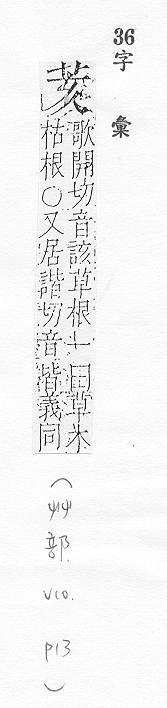 36
字彙
荄
歌開切音該草根一曰草木
枯根○又居諧切音階義同
(艸部 v10. p13)